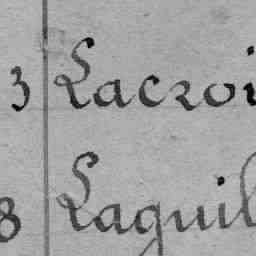 3 Lacroi
8 Laguil